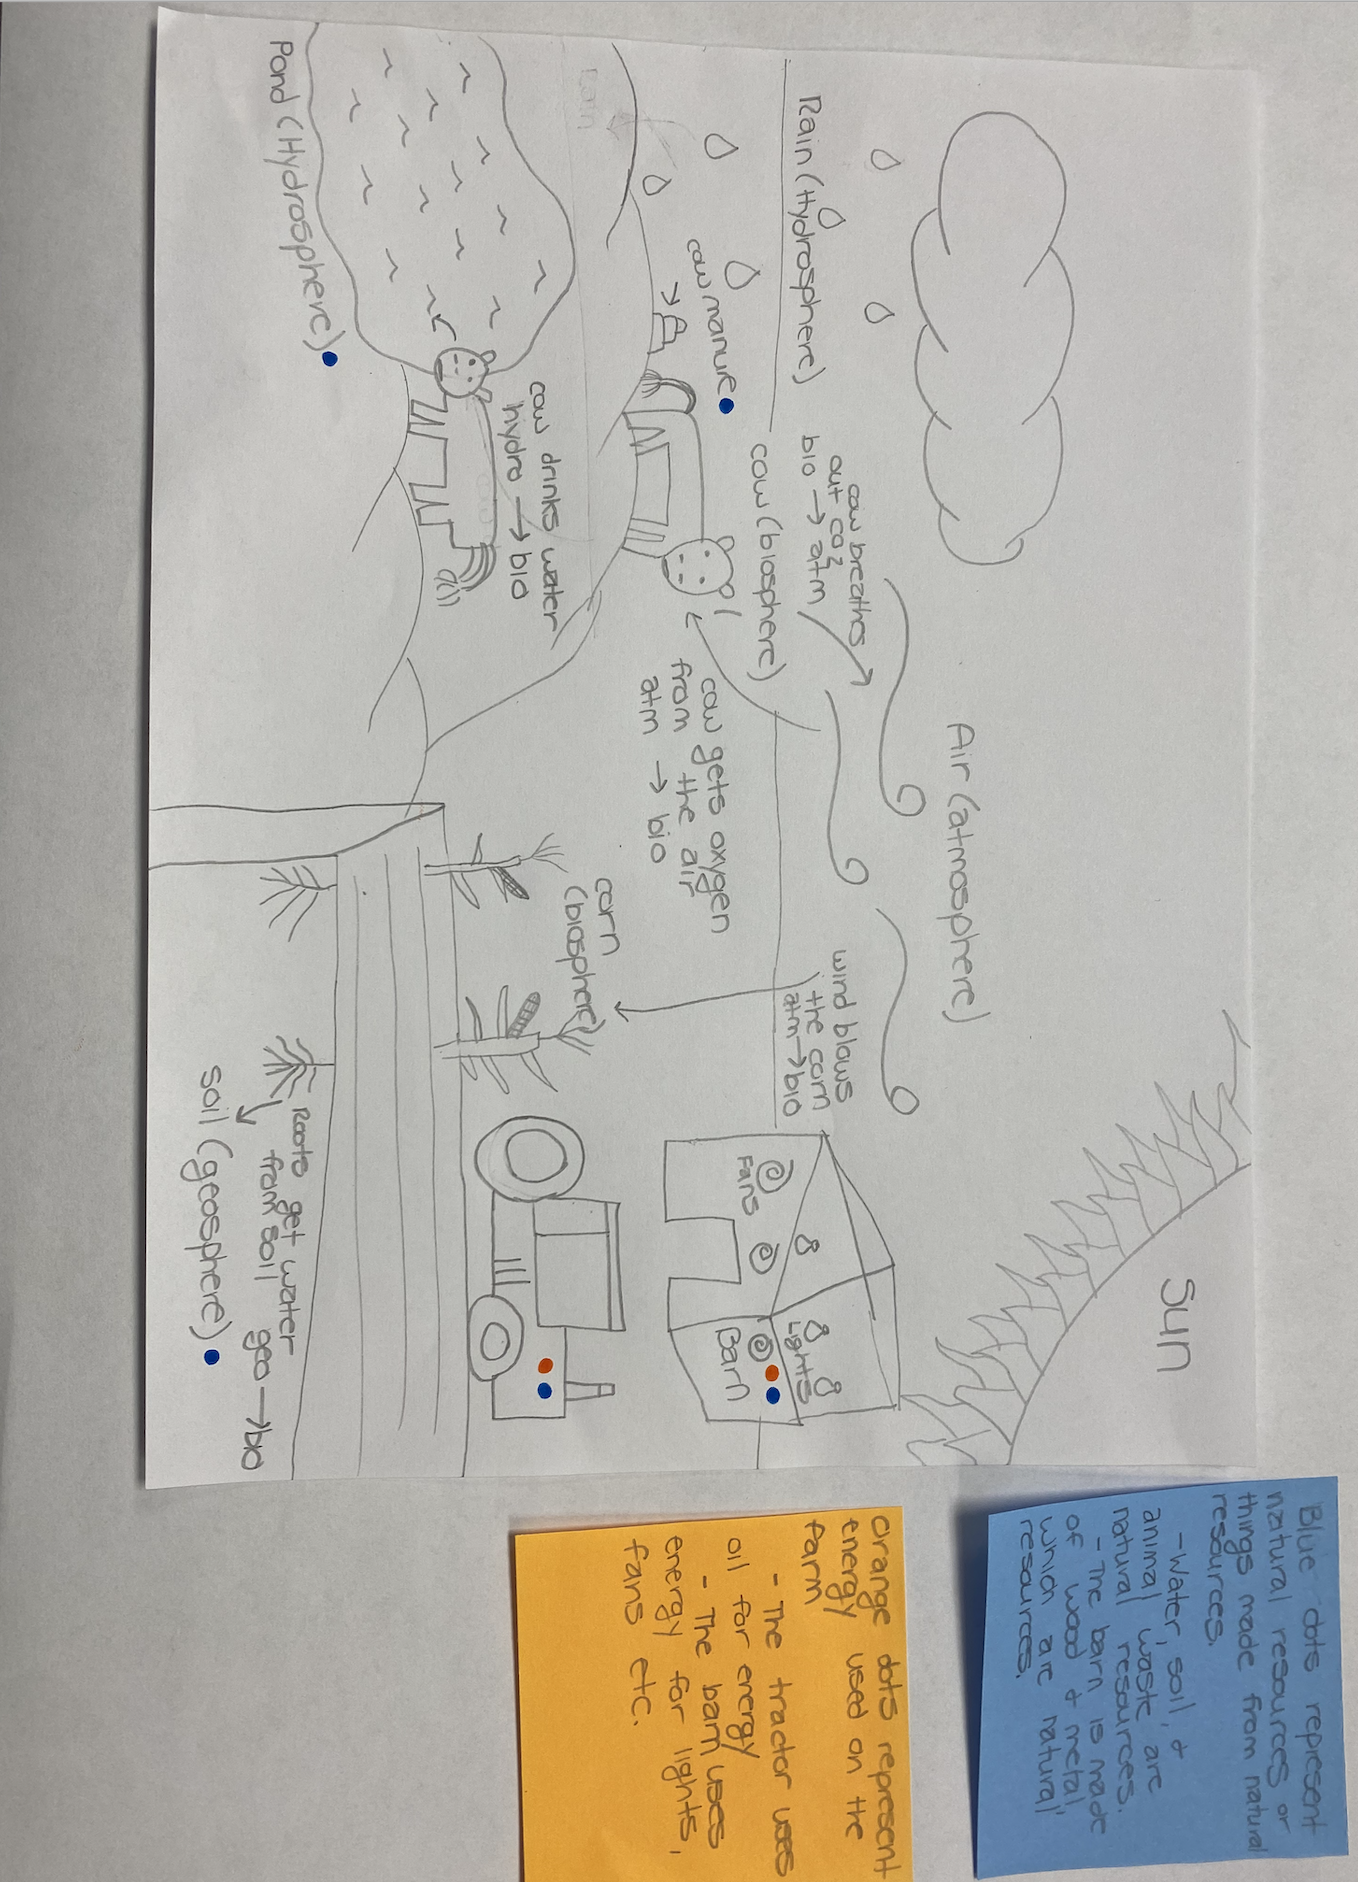 Sun
Air (atmosphere)
Rain (Hydrosphere)
cow breathes
out co2
bio → atm
wind blows
the corn
atm → bio
cow (biosphere)
cow manure
cow gets oxygen
from the air
atm → bio
Rain
Fans
Lights
Barn
cow drinks water
hydro → bio
corn
(biosphere)
Pond (Hydrosphere)
Roots get water
from soil geo → bio
soil (geosphere)
Blue dots represent
natural resources or
things made from natural
resources.
- Water, soil, +
animal waste are
natural resources.
- The barn is made
of wood + metal
which are natural
resources.
Orange dots represent
energy used on the
farm
- The tractor uses
oil for energy
- The barn uses
energy for lights,
fans etc.